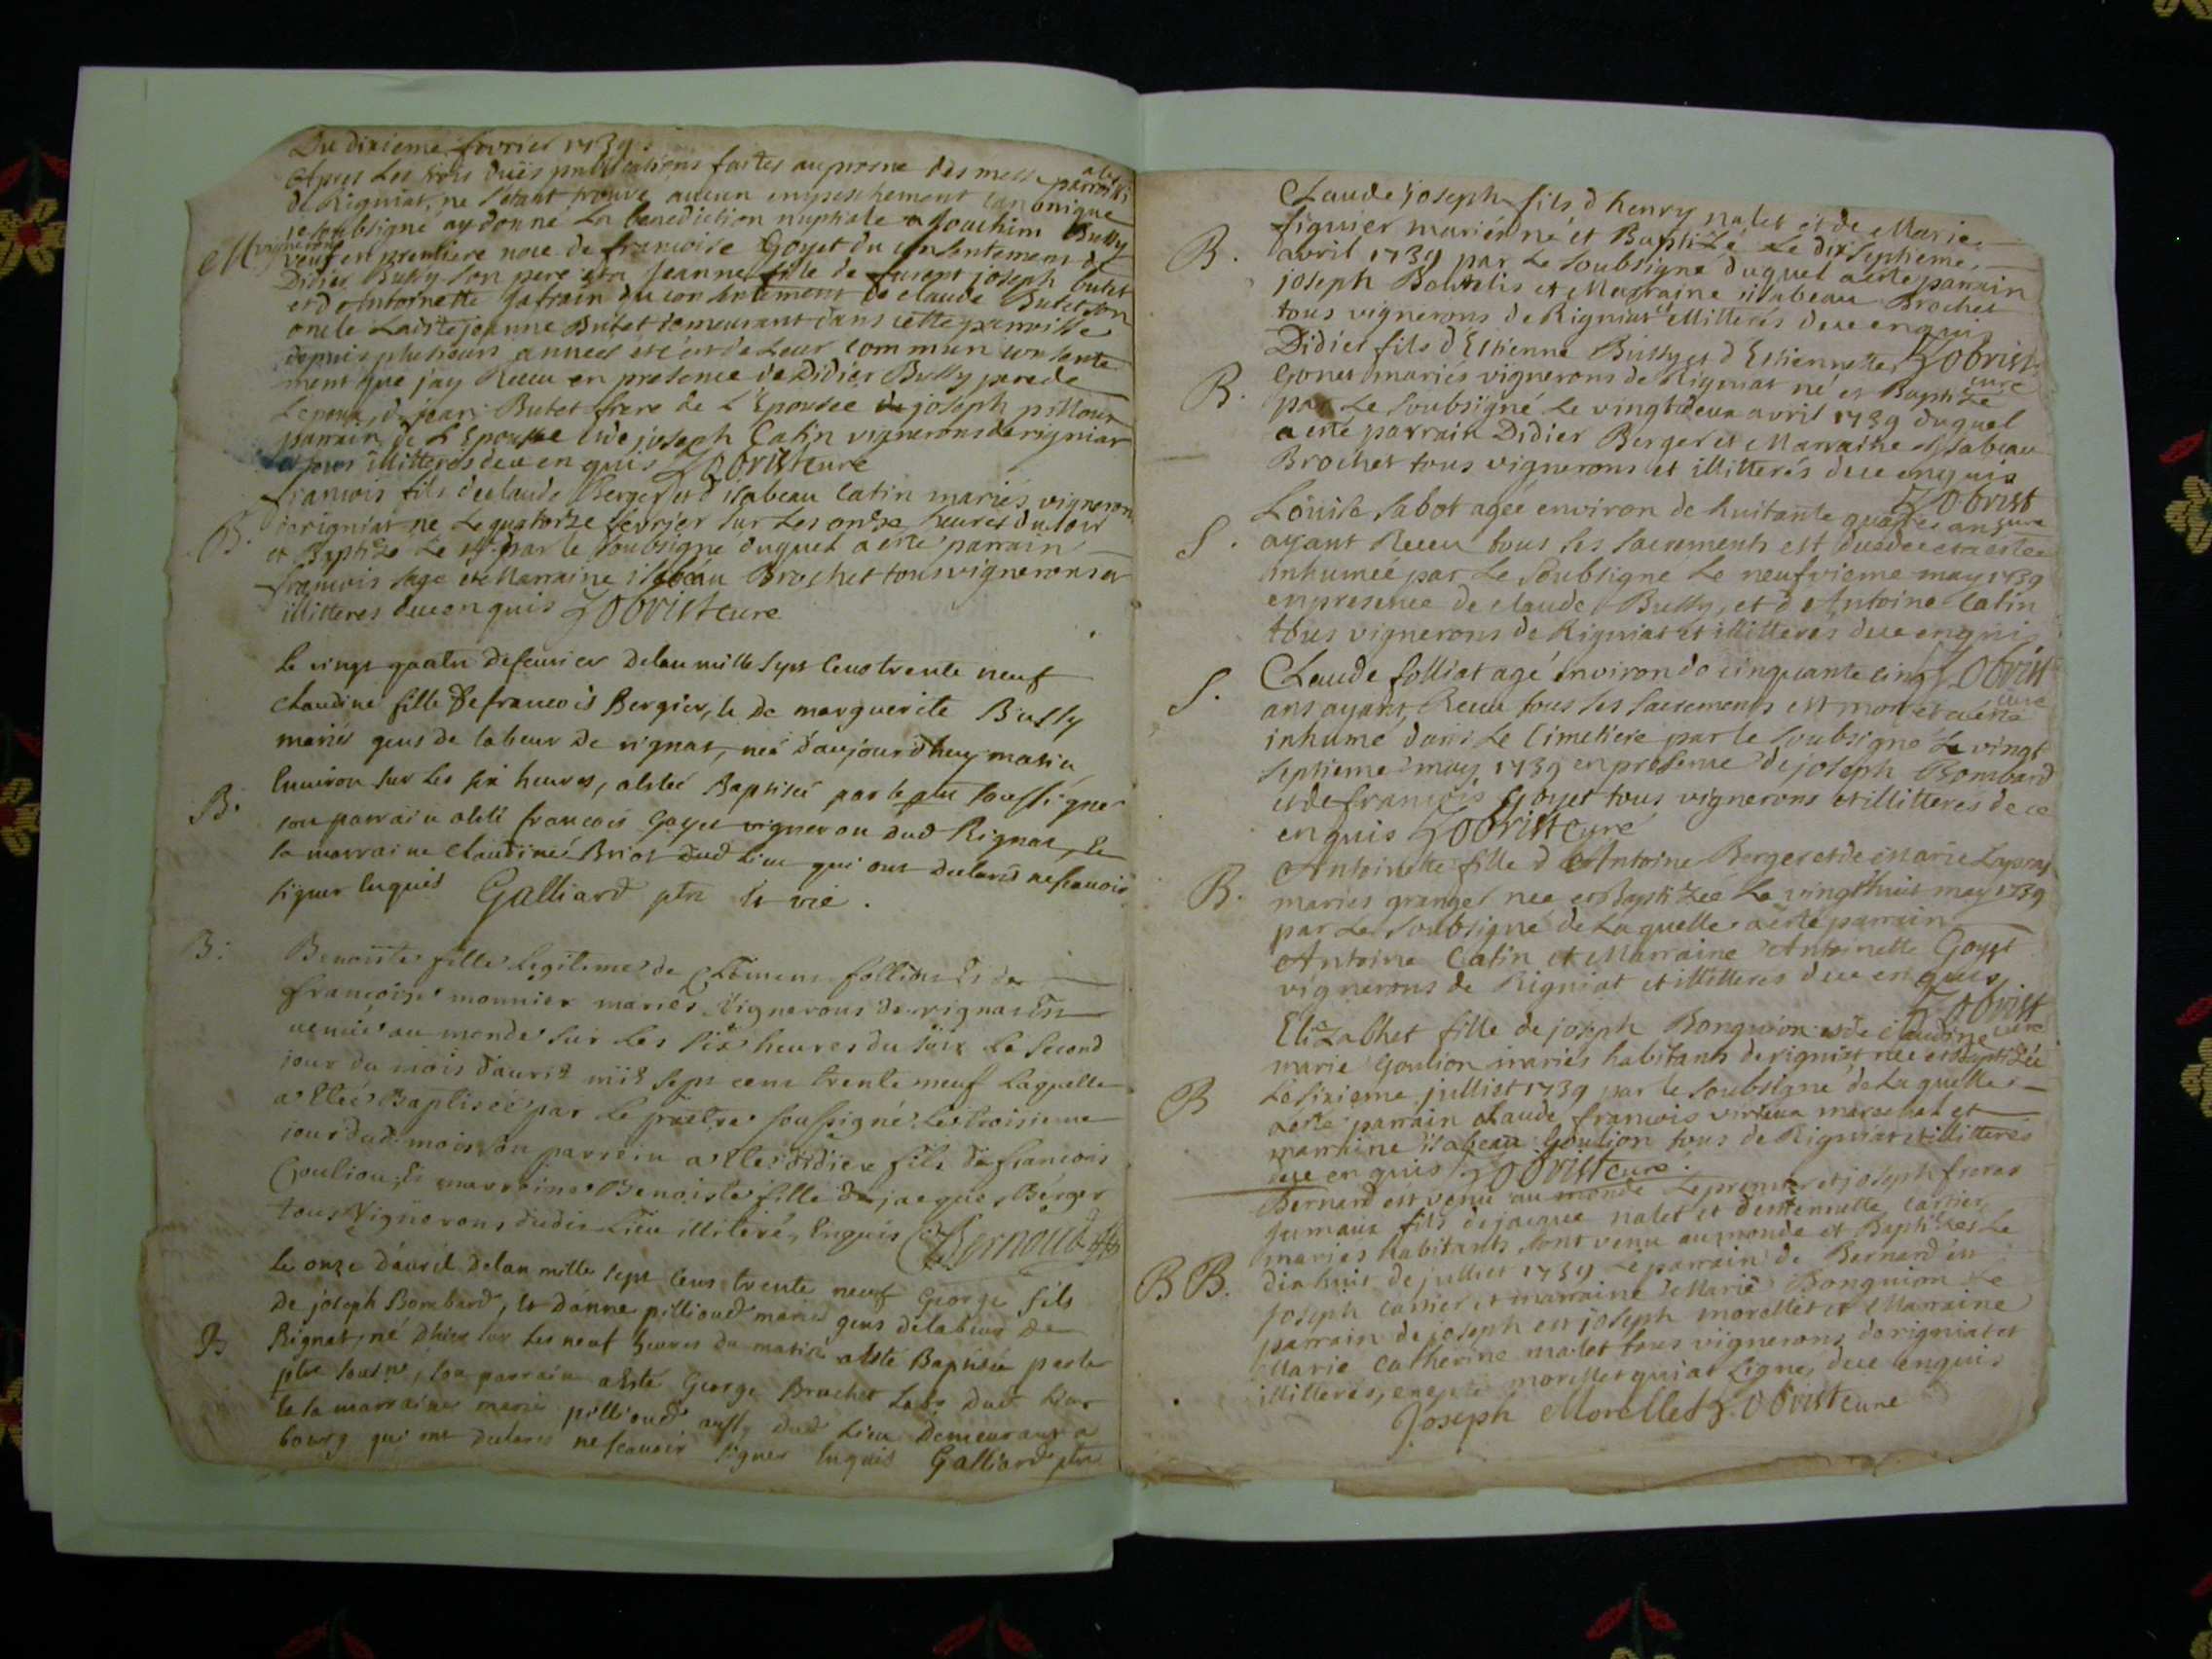 Du dixieme fevrier 1739.
Apres les trois dües publications faites au prosne des messes parroissiales
de Rigniat, ne s'etant trouvé aucun empeschement canonique
je soubsigné ay donné la benediction nuptiale a Jouachim Bussy
vigneron
M veuf en premiere noce de francoise Goyet du consentement de
Didier Bussy son pere et a Jeanne fille de furent joseph butet
et d'Antoinette du consentement de claude Butet son
oncle Ladite jeanne Butet demeurant dans cette parroisse
depuis plusieurs années et c'est de leur commun consente
ment que j'ay Receu en presence de Didier Bussy pere de
L'epoux, de jean Butet frere de L'Epousée de joseph pilliour
parrain de L'Epouse et de joseph Catin vignerons de rigniat
et tous illitteres de ce enquis Zobrist cure
francois fils de claude Berger et d'isabeau Catin mariés vignerons
de rigniat ne Le quatorze fevrier sur Les onze heures du soir
B. et Baptizé Le 15 par le soubsigné duquel a esté parrain
francois sage et Marraine isabeau Brochet tous vignerons et
illitteres de ce enquis Zobrist cure
Le vingt quatre defeuvier delan mille sept Cens trente neuf
claudine fille De francois Bergier, et De marguerite Bussy
mariés gens de labeur De rignat, neé d'aujourdhuy matin
Environ sur Les six heures, a esteé Baptisée par le ptre soussigné
B. son parrain a esté francois Goyet vigneron dud Rignat, et
la marraine claudine Briot dud Lieu qui ont declarés ne scavoir
signer enquis Galliard ptre et vic.
B: Benoiste fille Legitime de Clemens folliat et de
francoise monnier mariés vignerons de rignat est
venüe au monde sur Les six heures du soir Le second
jour du mois d'avril mil sept cens trente neuf Laquelle
a esteé Baptisée par Le prestre soussigné Le troisieme
jour dud. mois son parrein a esté didier fils de francois
Goulion, et marraine Benoiste fille de jacque Berger
tous vignerons dudit Lieu illiteré, enquis Bernoud
Le onze d'auril delan mille sept Cens trente neuf George fils
De joseph Bombard, et d'anne pillioud mariés gens de labeur De
B Rignat, né d'hier sur Les neuf heures du matin a esté Baptisée par le
ptre souse, son parrain a esté George Brochet Labr Dud Lieu
et la marraine marie pillioud aussy Dud Lieu Demeurant a
bourg qui ont declarés ne scavoir signer enquis Galliard ptre
Claude joseph fils d henry nalet et de Marie
figuier mariés né et Baptizé Le dix septieme
B. avril 1739 par Le soubsigné duquel a esté parrain
joseph et Marraine isabeau Brochet
tous vignerons de Rigniat et illitterés de ce enquis
Zobrist cure
Didier fils d'Estienne Bussy et d'Estiennette
Gonet mariés vignerons de Rigniat né et Baptizé
B. par Le soubsigné Le vingt deux avril 1739 duquel
a esté parrain Didier Berger et Marraine isabeau
Brochet tous vignerons et illitterés de ce enquis
Zobrist cure
Loüise sabot agée environ de huitante quatre ans
S. ayant Receu tous les sacrements est decedee et a esté
inhumée par Le soubsigne Le neufvieme may 1739
en presence de claude Bussy, et d'Antoine Catin
tous vignerons de Rigniat et illitterés de ce enquis
Zobrist cure
Claude folliat agé environ de cinquante cinq
S. ans ayant Receu tous les sacrements est mort et a esté
inhumé dans Le Cimetiere par le soubsigné Le vingt
septieme may 1739 en presence de joseph Bombard
et de francois Goyet tous vignerons et illitteres de ce
enquis Zobrist Curé
Antoinette fille d'Antoine Berger et de Marie
B. mariés granger neé et Baptizeé Le vingthuit may 1739
par Le soubsigné de Laquelle a esté parrain
Antoine Catin et Marraine Antoinette Goyet
vignerons de Rigniat et illitteres de ce enquis
Zobrist cure
Elizabhet fille de joseph Bonguion et de claudine
marie Goulion mariés habitants de rigniat neé et baptizée
B Le sixieme julliet 1739 par le soubsigné de Laquelle
a esté parrain claude francois vireux marechal et
marraine isabeau Goulion tous de Rigniat et illitterés
de ce enquis Zobrist cure.
Bernard est venu au monde Le premier et joseph freres
jumaux fils de jacque nalet et d'estiennette carrier
mariés habitants sont venu au monde et Baptizes Le
B B. dix huit de julliet 1739 Le parrain de Bernard est
joseph carrier et marraine Marie Bonguion Le
parrain de joseph est joseph morellet et Marraine
Marie Catherine malet tous vignerons de rigniat et
illitterés, excepté morellet qui a signé, de ce enquis
Joseph Morellet Zobrist cure